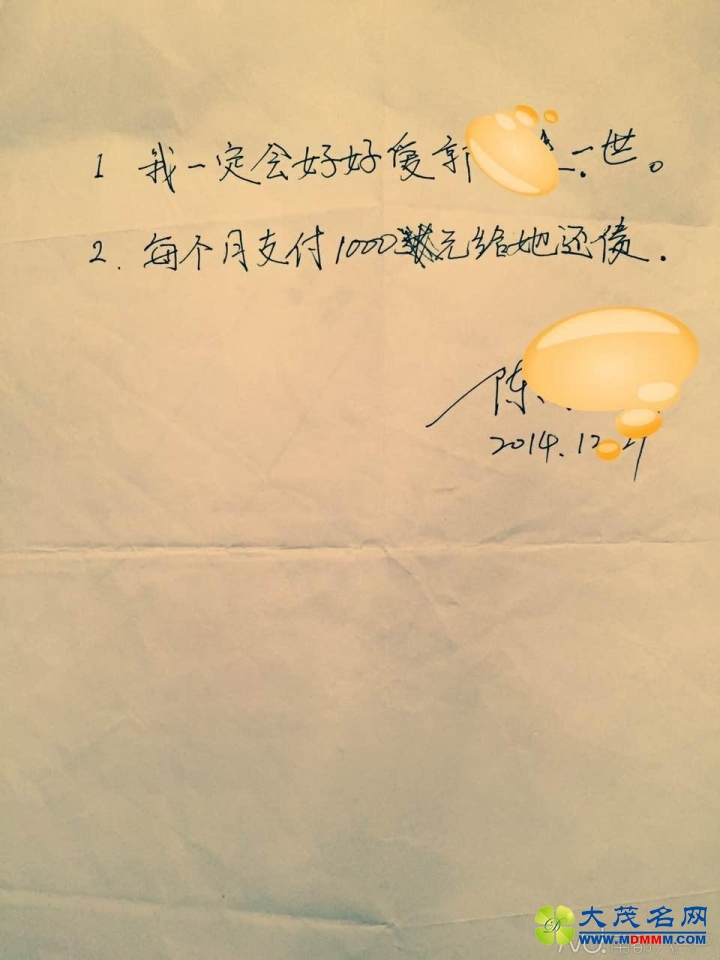 1 我一定会好好爱郭 一世。
2. 每个月支付1000元给她还债.
陈
2014.12
大茂名网
WWW.MDMMM.COM